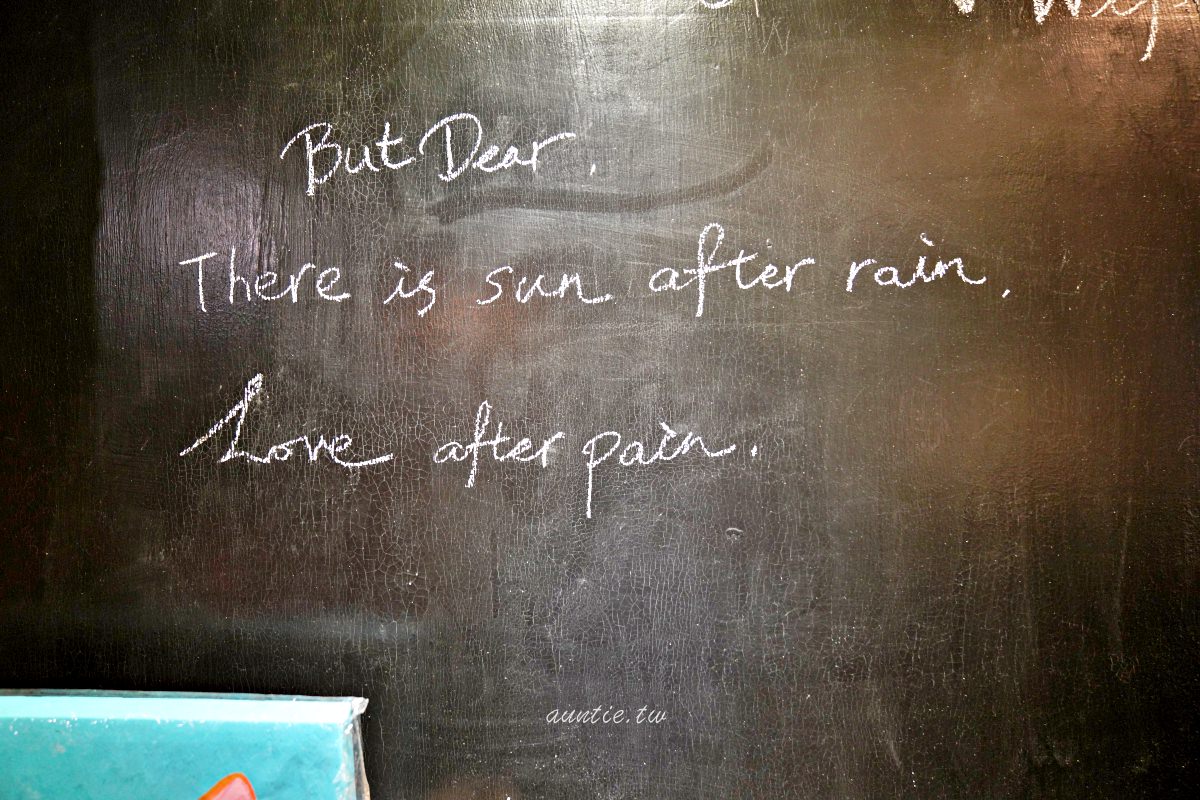 But Dear,
There is sun after rain,
Love after pain.
auntie.tw